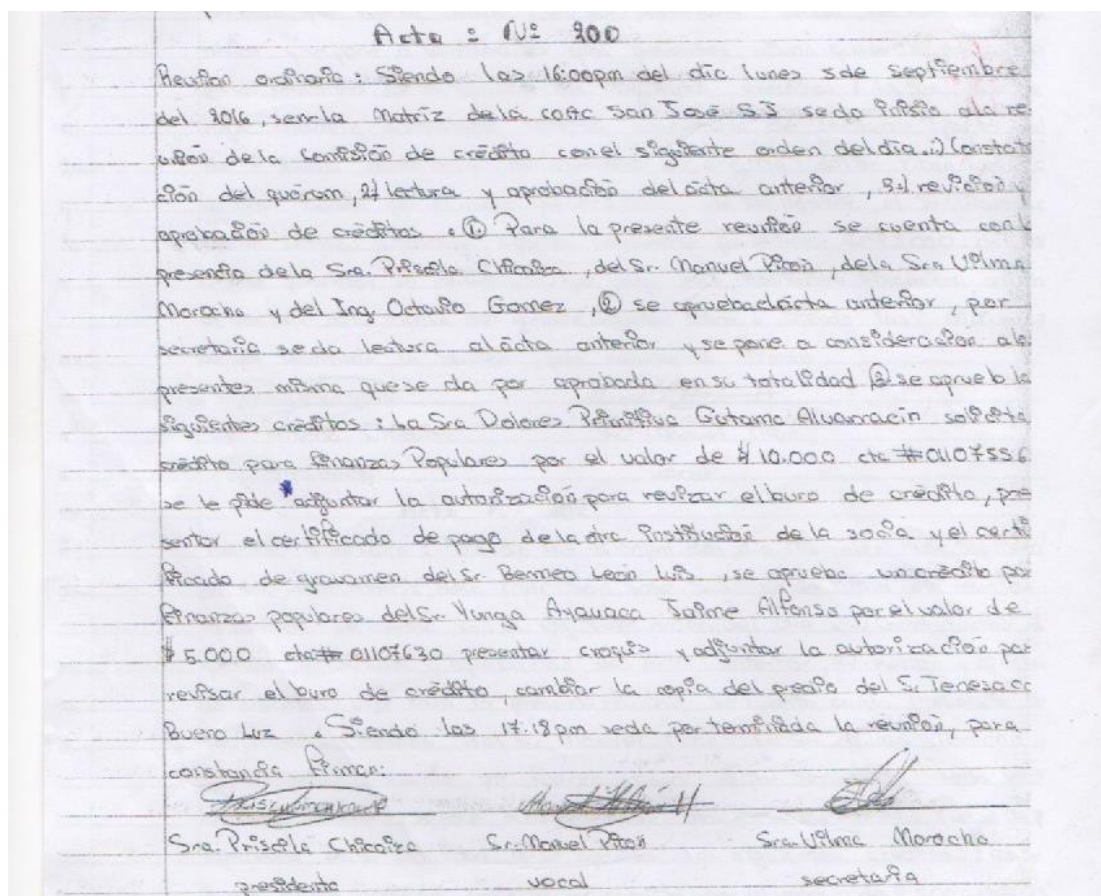 Acta : Nº 200
Reunion ordinaria : Siendo las 16:00pm del dia lunes 5 de septiembre
del 2016, en la Matríz de la coac San José S.J se da inisio ala re
unión de la comisión de crédito con el siguiente orden del día .:) Constata
ción del quórum, 2/ lectura y aprobación del acta anterior, 3-/ revición y
aprobación de créditos . ① Para la presente reunión se cuenta con l
presencia de la Sra. Priscila Chicaiza, del Sr. Manuel Pizón, de la Sra Vilma
Morocho y del Ing. Octavio Gomez, ② se aprueba el ácta anterior, por
secretaría se da lectura al ácta anterior y se pone a consideración a lo
presentes misma que se da por aprobada en su totalidad ③ se aprueb lo
siguientes créditos : La Sra Dolores Primitiva Gutama Alvarracín solicita
crédito para finanzas Populares por el valor de $ 10.000 cta #01107556
se le pide * adjuntar la autorización para revizar el buro de crédito, pre
sentar el certificado de pago de la otra institución de la socia y el certi
ficado de gravamen del Sr. Bermeo León Luis, se aprueba un crédito por
finanzas populares del Sr. Yunga Ayavaca Jaime Alfonso por el valor de
$ 5.000 cta# 01107630 presentar croquis y adjuntar la autorización par
revisar el buro de crédito, cambiar la copia del predio del S. Tenesaca
Bueno Luz . Siendo las 17:18pm se da por terminada la reunión, para
constancia firman:
Sra. Priscila Chicaiza Sr. Manuel Pizón Sra. Vilma Morocho
presidenta vocal secretaria